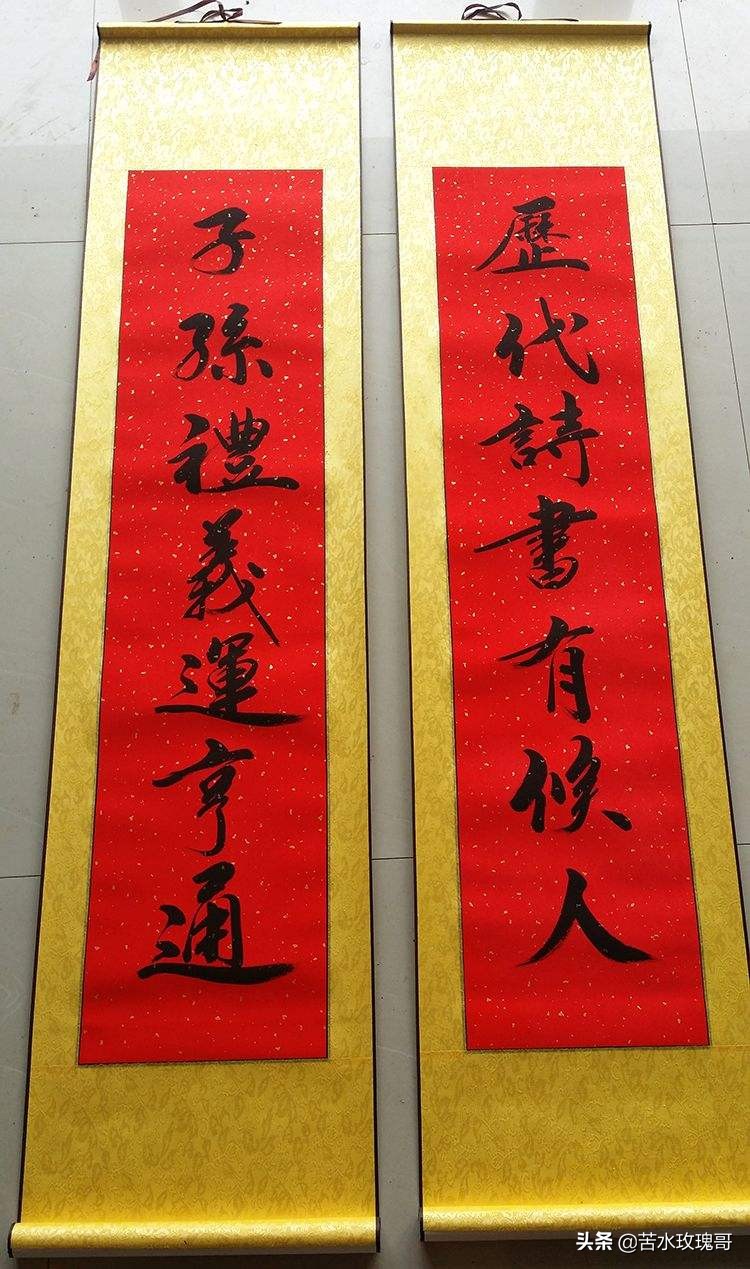 歷代詩書有候人
子孫禮義運亨通
头条 @苦水玫瑰哥